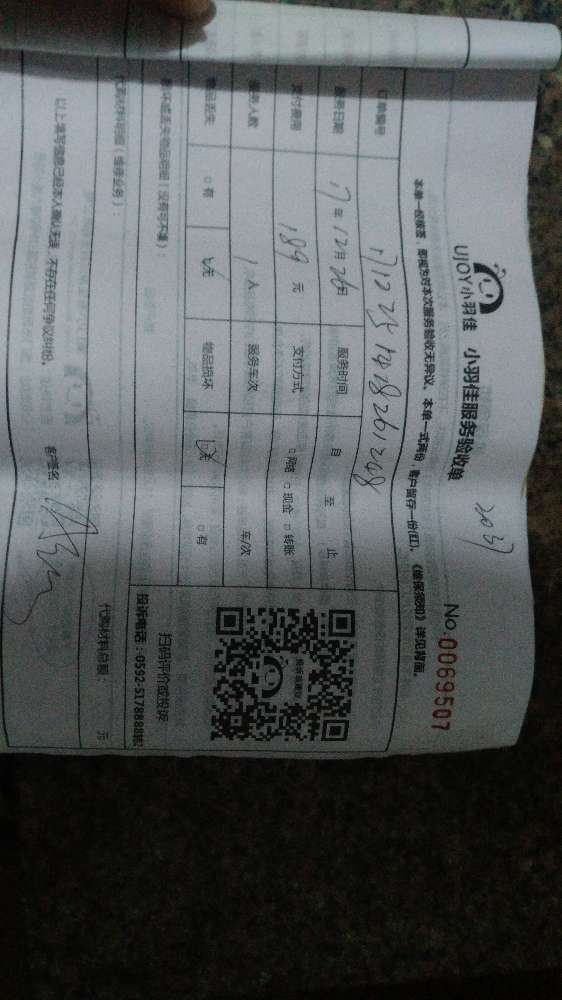 UJOY小羽佳 小羽佳服务验收单
2037
No. 0069507
本单一经签署,即视为对本次服务验收无异议。本单一式两份,客户留存一份(红)。《维保须知》详见背面。
订单编号 1712251418261268
服务日期 17年12月26日 服务时间 自 至 止
支付费用 189元 支付方式 □网络 □现金 □转账
服务人数 1人 服务车次 车/次
物品丢失 □有 □无 物品损坏 □无 □有
损坏或丢失物品说明(没有可不填):
扫码评价或投诉
投诉电话:0592-5178888转
代购材料明细(维修业务):
代购材料总额: 元
以上填写信息已经本人确认无误,不存在任何争议纠纷。 客户签名: